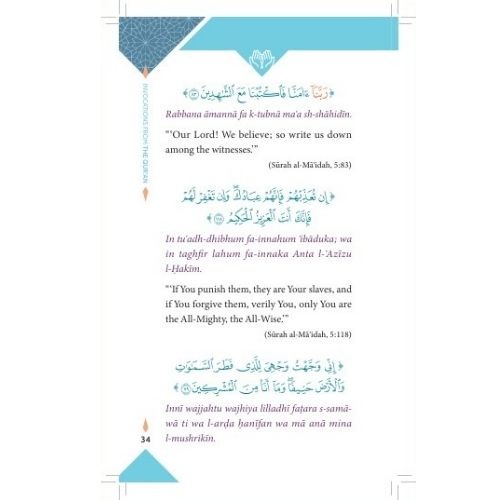 INVOCATIONS FROM THE QUR'AN
﴿ رَبَّنَآ ءَامَنَّا فَٱكْتُبْنَا مَعَ ٱلشَّٰهِدِينَ ﴿٨٣﴾ ﴾
Rabbana āmannā fa k-tubnā ma'a sh-shāhidīn.
“‘Our Lord! We believe; so write us down
among the witnesses.’”
(Sūrah al-Mā'idah, 5:83)
﴿ إِن تُعَذِّبْهُمْ فَإِنَّهُمْ عِبَادُكَ ۖ وَإِن تَغْفِرْ لَهُمْ
فَإِنَّكَ أَنتَ ٱلْعَزِيزُ ٱلْحَكِيمُ ﴿١١٨﴾ ﴾
In tu'adh-dhibhum fa-innahum 'ibāduka; wa
in taghfir lahum fa-innaka Anta l-'Azīzu
l-Ḥakīm.
“‘If You punish them, they are Your slaves, and
if You forgive them, verily You, only You are
the All-Mighty, the All-Wise.’”
(Sūrah al-Mā'idah, 5:118)
﴿ إِنِّى وَجَّهْتُ وَجْهِىَ لِلَّذِى فَطَرَ ٱلسَّمَٰوَٰتِ
وَٱلْأَرْضَ حَنِيفًا ۖ وَمَآ أَنَا۠ مِنَ ٱلْمُشْرِكِينَ ﴿٧٩﴾ ﴾
Innī wajjahtu wajhiya lilladhī faṭara s-samā-
wā ti wa l-arḍa ḥanīfan wa mā anā mina
l-mushrikīn.
34